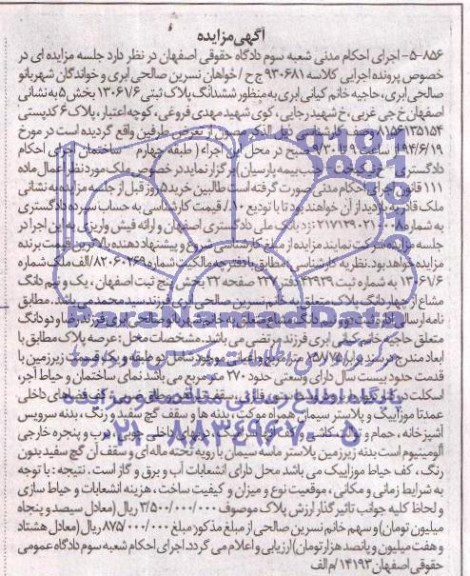 آگهی مزایده
۸۵۶-۵- اجرای احکام مدنی شعبه سوم دادگاه حقوقی اصفهان در نظر دارد جلسه مزایده ای در
خصوص پرونده اجرایی کلاسه ۹۳۰۶۸۱ ج ح / خواهان نسرین صالحی ابری و خواندگان شهربانو
صالحی ابری، حاجیه خانم کیانی ابری به منظور ششدانگ پلاک ثبتی ۱۳۰۶۱/۷۶ بخش ۵ به نشانی
اصفهان خ جی غربی، خ شهید رجایی، کوی شهید مهدی فروغی، کوچه اعتبار، پلاک ۶ کدپستی
۸۱۵۶۱۳۵۱۵۴ مصون از تعرض طرفین واقع گردیده است در مورخ
۹۴/۶/۱۹ ساعت ۹ تا ۹/۳۰ صبح در محل این اجراء (طبقه چهارم ساختمان اجرای احکام
دادگستری جنب بیمه پارسیان) برگزار نماید در خصوص ملک مورد نظر اعمال ماده
۱۱۱ قانون اجرای احکام مدنی صورت گرفته است طالبین خرید ۵ روز قبل از جلسه مزایده به نشانی
ملک قادر به بازدید از آن خواهند بود تا با تودیع ۱۰٪ قیمت کارشناسی به حساب سپرده دادگستری
به شماره نزد بانک ملی دادگستری اصفهان و ارائه فیش واریزی به این اجرا در
جلسه مزایده شرکت نمایند مزایده از مبلغ کارشناسی شروع و پیشنهاد دهنده بالاترین قیمت برنده
مزایده خواهد بود. نظریه کارشناسی مطابق با دفترچه مالکیت شماره ۸۲۰۶۰۲۶۹ الف ملک شماره
۱۳۰۶۱/۷۶ به شماره ثبت دفتر صفحه ۳۲ بخش پنج ثبت اصفهان، یک و نیم دانگ
مشاع از چهار دانگ پلاک متعلق به خانم نسرین صالحی ابری فرزند سید محمد می باشد. مطابق
نامه ارسالی اداره ثبت دو و نیم دانگ مشاع متعلق به خانم شهربانو صالحی ابری فرزند رضا و دو دانگ
متعلق حاجیه خانم کیانی ابری فرزند مرتضی می باشد. مشخصات محل: عرصه پلاک مطابق با
ابعاد مندرج در سند برابر مترمربع و اعیانی موجود شامل دو طبقه و یک قسمت زیرزمین با
قدمت حدود بیست سال دارای وسعتی حدود ۲۷۰ مترمربع می باشد نمای ساختمان و حیاط آجر،
اسکلت دیوار کف فضاهای داخلی
عمدتا موزاییک و پلاستر سیمان همراه موکت، بدنه ها و سقف گچ سفید و رنگ، بدنه سرویس
آشپزخانه، حمام و درب های داخلی چوبی درب و پنجره خارجی
آلومینیوم است بدنه زیرزمین پلاستر ماسه سیمان با رویه تخته ماله ای و سقف آن گچ سفید بدون
رنگ، کف حیاط موزاییک می باشد محل دارای انشعابات آب و برق و گاز است. نتیجه: با توجه
به شرایط زمانی و مکانی، موقعیت نوع و میزان و کیفیت ساخت، هزینه انشعابات و حیاط سازی
و لحاظ کلیه جوانب تاثیر گذار ارزش پلاک موصوف ۳/۵۰۰/۰۰۰/۰۰۰ ریال (معادل سیصد و پنجاه
میلیون تومان) و سهم خانم نسرین صالحی از مبلغ مذکور مبلغ ۸۷۵/۰۰۰/۰۰۰ ریال (معادل هشتاد
و هفت میلیون و پانصد هزار تومان) ارزیابی و اعلام می گردد. اجرای احکام شعبه سوم دادگاه عمومی
حقوقی اصفهان ۱۴۱۹۳/م الف
ParsNamadData
۰۲۱-۸۸۳۴۹۶۷۰-۵